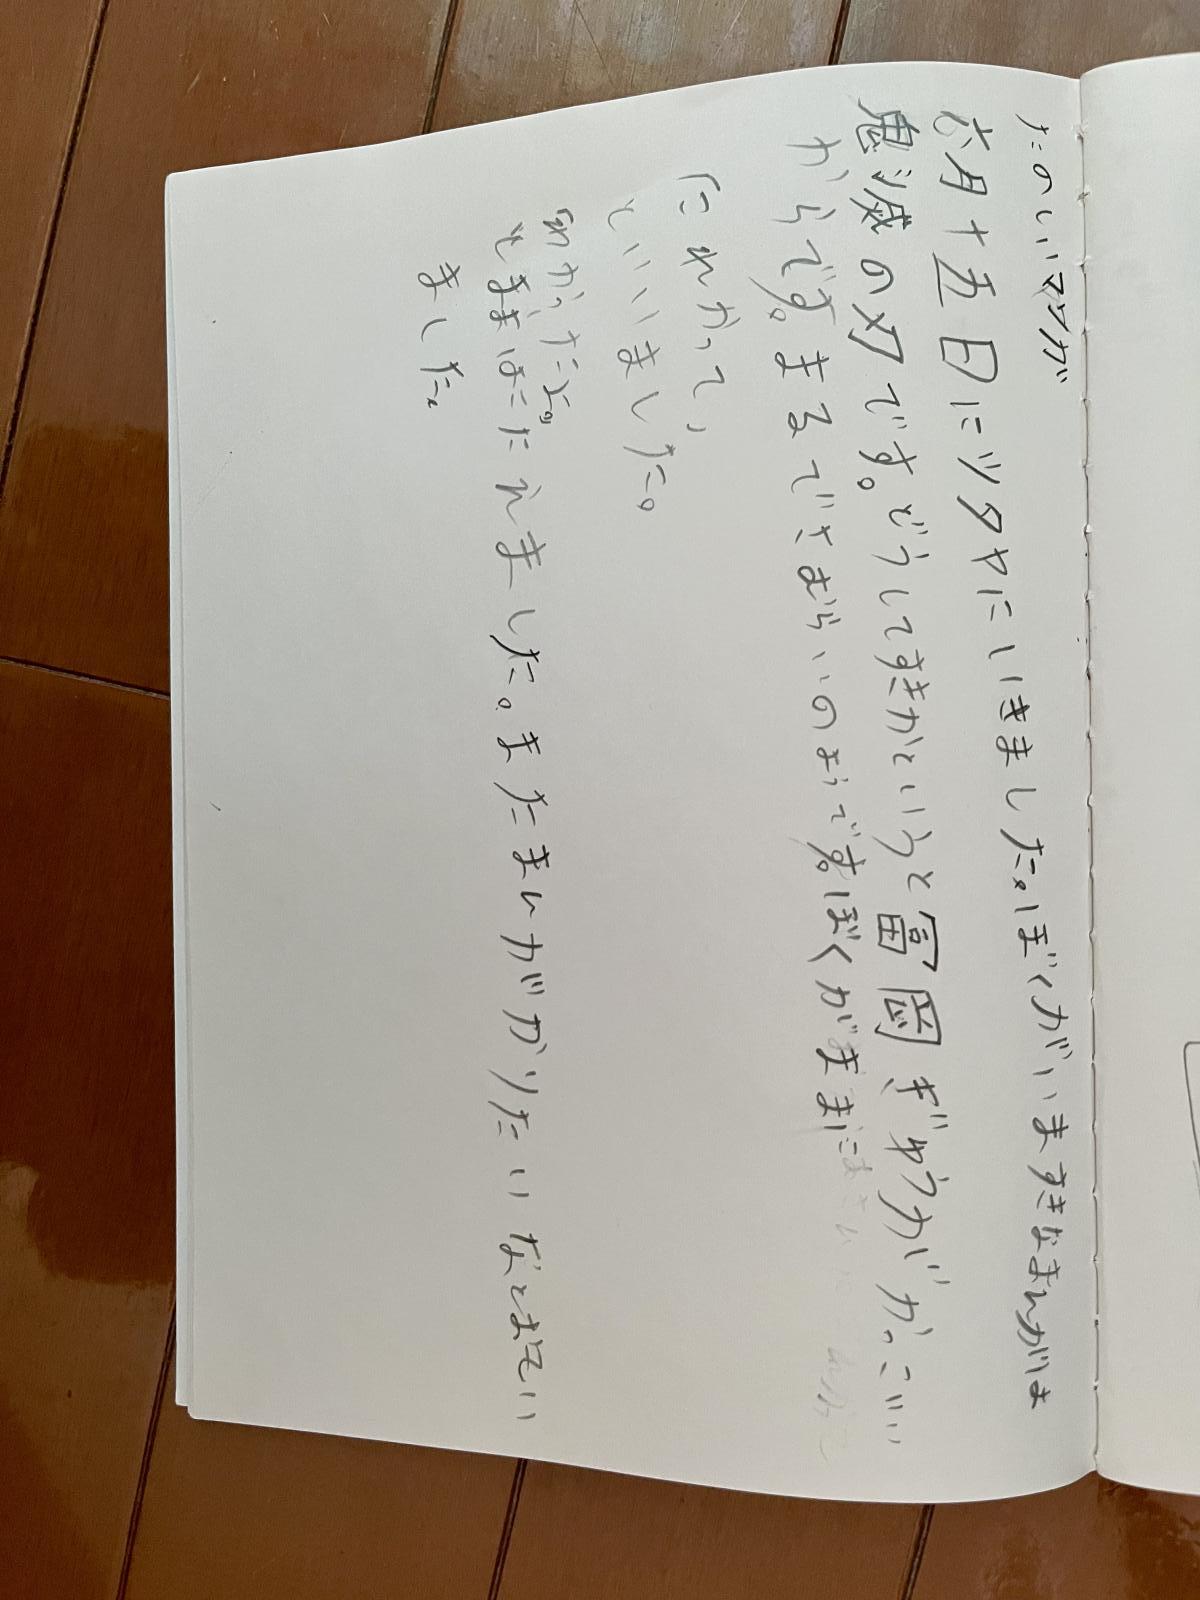 たのしいマンガ
六月十五日にツタヤにいきました。ぼくがいますきなまんがは
鬼滅の刃です。どうしてすきかというと冨岡ぎゆうがかっこいい
からです。まるでさむらいのようです。ぼくがままに
「これかって」
といいました。
「わかったよ。」
とままはこたえました。またまんがかりたいなとおもてい
ました。